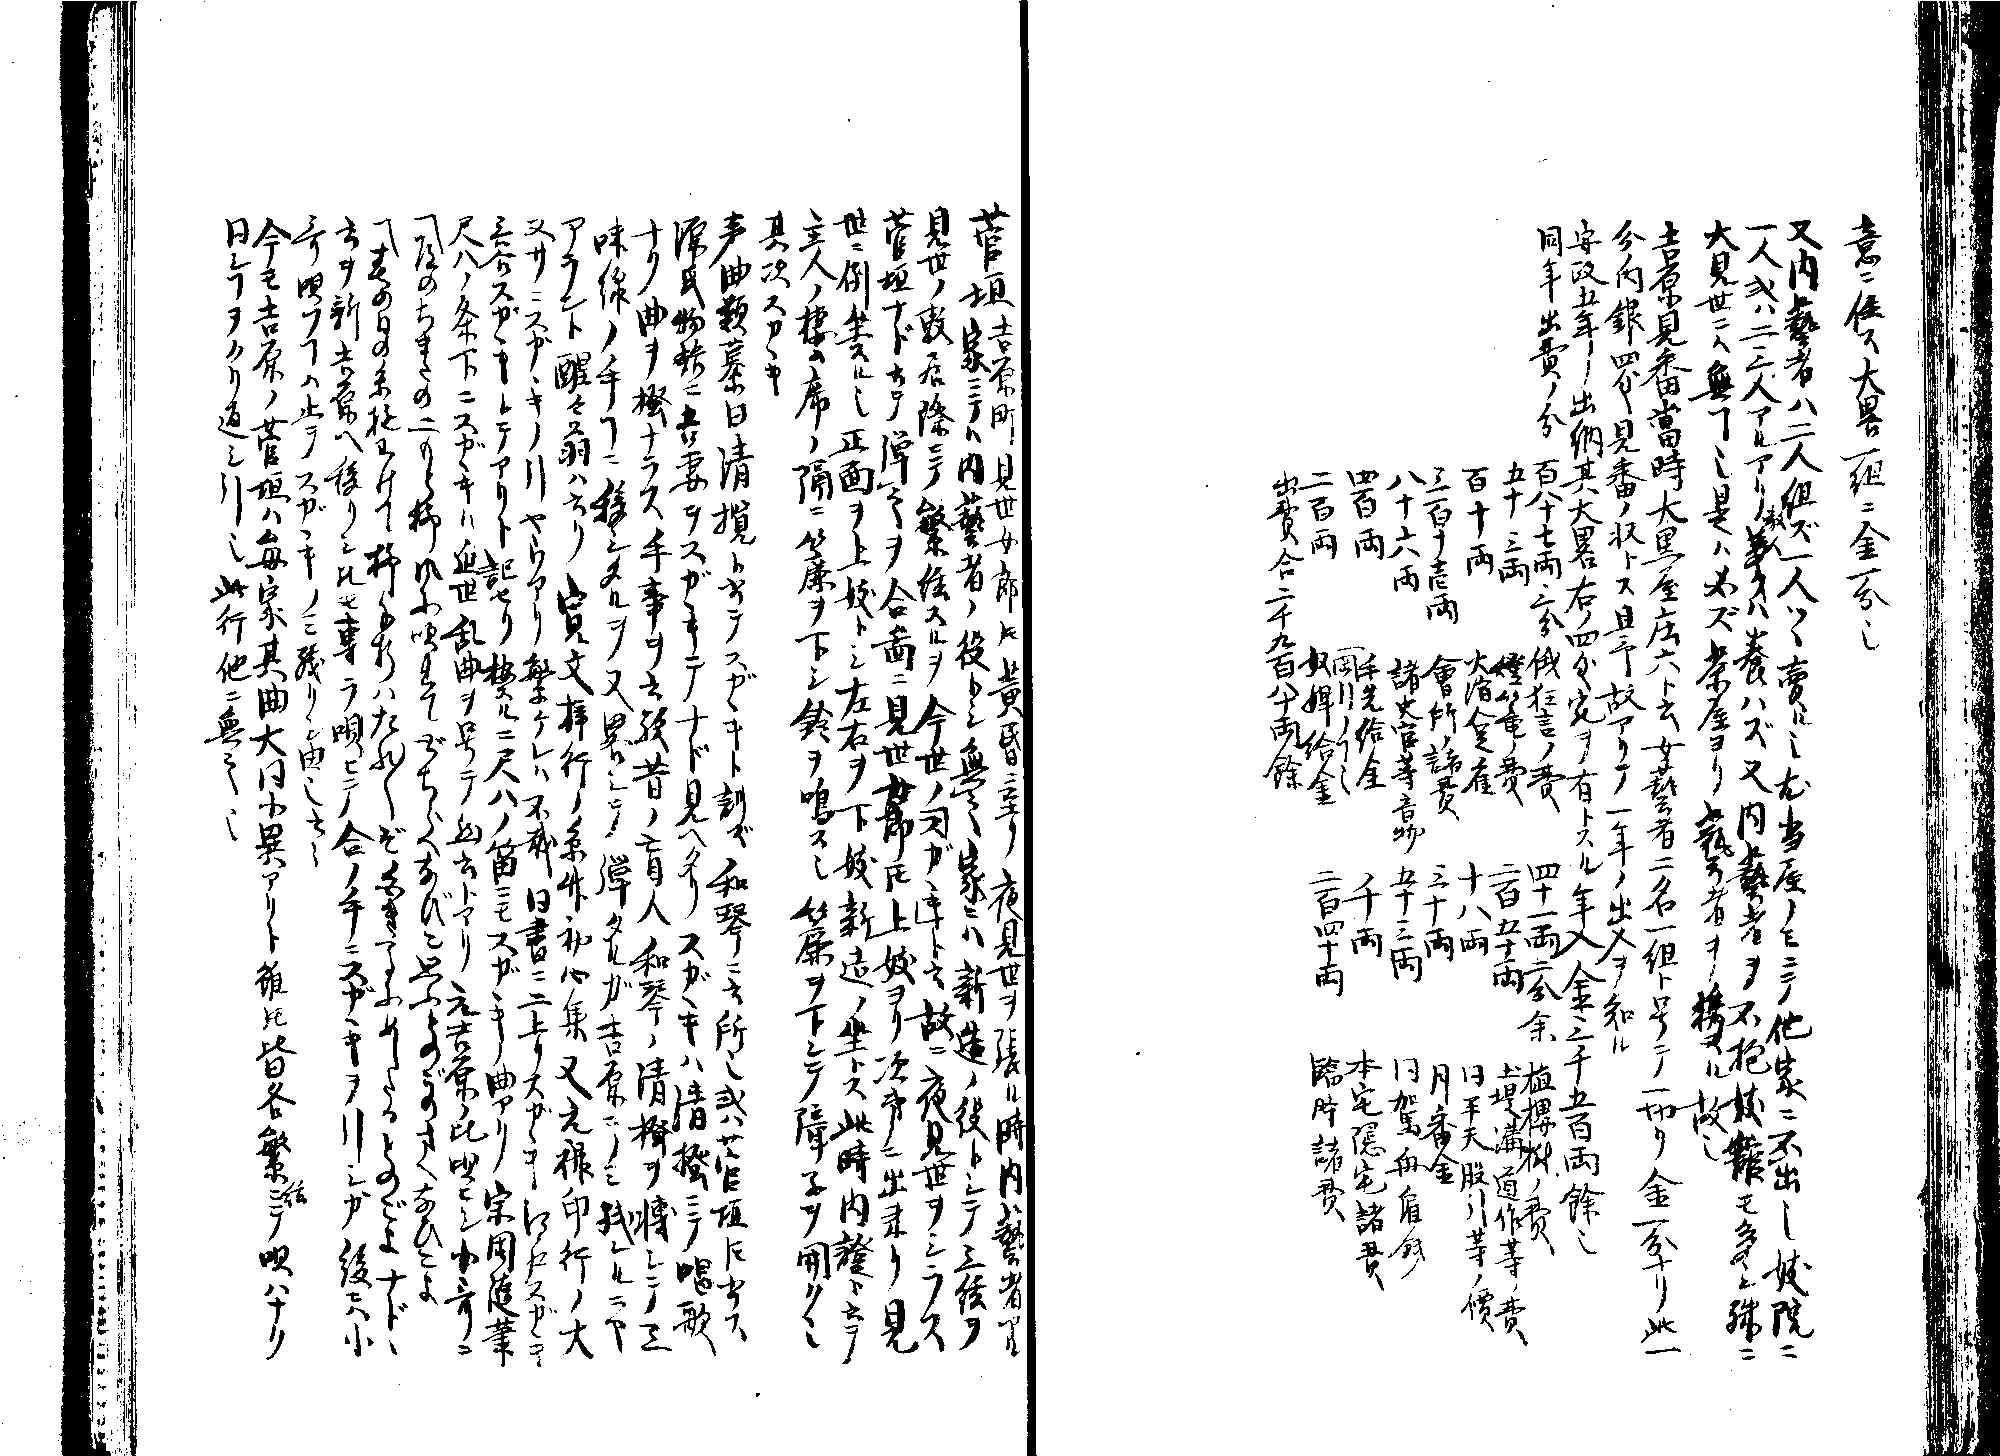 意ニ任ス大畧一組ニ金一分也
又内藝者ハ二人組ズ一人ツヽ賣ル也尤当屋ノミニテ他家ニ不出也妓院ニ
一人或ハ二三人アルアリ数人ハ養ハズ又内藝者ヲ不抱妓院モ多シ殊ニ
大見世ニハ無之也是ハ必ズ茶屋ヨリ藝者ヲ携ヨル故也
吉原見番當時大黒屋庄六ト云女藝者二名一組ト号テ一切リ金一分ナリ此一
分ノ内銀四匁見番ノ収トス且予故アリテ一年ノ出入ヲ知ル
安政五年ノ出納其大畧右ノ四匁宛ヲ有トスル年入金三千五百両餘也
同年出費ノ分
百八十七両二分 俄狂言ノ費
四十一両二分余 植櫻樹ノ費
五十三両 燈篭ノ費
二百五十両 土堤溝道作等ノ費
百十両 火消人足雇
十八両 同半天股引等ノ價
三百十壱両 會所ノ諸費
三十両 月番金
八十六両 諸史官等音物
五十三両 同駕舟雇銭
四百両 手先給金
千両 本宅隠宅諸費
二百両 奴婢給金
二百四十両 臨時諸費
出費合二千九百八十両餘
菅垣 吉原町見世女郎ハ黄昏ニ至リ夜見世ヲ張ル時内藝者アル
家ニテハ内藝者ノ役トシ無之家ニハ新造ノ役トシテ三絃ヲ
見世ノ敷居際ニテ繁絃スルヲ今世ノ司ガキト云故ニ夜見世ヲシラス
菅垣ナドヽ云テ弾之ヲ合啚ニ見世女郎ハ上妓ヨリ次第ニ出来リ見
世ニ倒坐スル也正面ヲ上妓トシ左右ヲ下妓新造ノ坐トス此時内證ト云テ
主人ノ棲ム席ノ隔ニ簾ヲ下シ鈴ヲ鳴ス也簾ヲ下シテ障子ヲ開ク也
其次スガヽキ
声曲類纂曰清攪ト書テスガヽキト訓ズ和琴ニ云所也或ハ菅垣ニ書ス
源氏物語ニ吾妻ヲスガヽキテナド見ヘタリスガヽキハ清掻ニテ唱歌
ナク曲ヲ掻ナラス手事ヲ云歟昔ノ盲人和琴ノ清掻ヲ轉シテノ三
味線ノ手ワニ移シタルヲ又畧シテ弾タルガ吉原ニノミ残レルニヤ
アラント醒々翁ハ云リ寛文梓行ノ糸竹初心集又元禄印行ノ大
又サニスガヽキノ引ヤウアリ繁ケレハ不載同書ニ二上リスガヽキ江戸スガヽキ
三谷スガヽキトテアリト記セリ按ルニ尺八ノ笛ニモスガヽキノ曲アリ宗因随筆
尺八ノ条下ニスガヽキハ近世乱曲ヲ号テ如云トアリ元吉原ノ比唄ヒシ小哥ニ
云ヲ新吉原ヘ移リシ比モ専ラ唄ヒテ合ノ手ニスガヽキヲ引シガ後ニハ小
哥唄フコハ止テスガヽキノミ残リシ由也云々
今モ吉原ノ菅垣ハ毎家其曲大同小異アリト雖ドモ皆各繁絃ニテ唄ハナク
同シコヲクリ返シ引也此行他ニ無之也